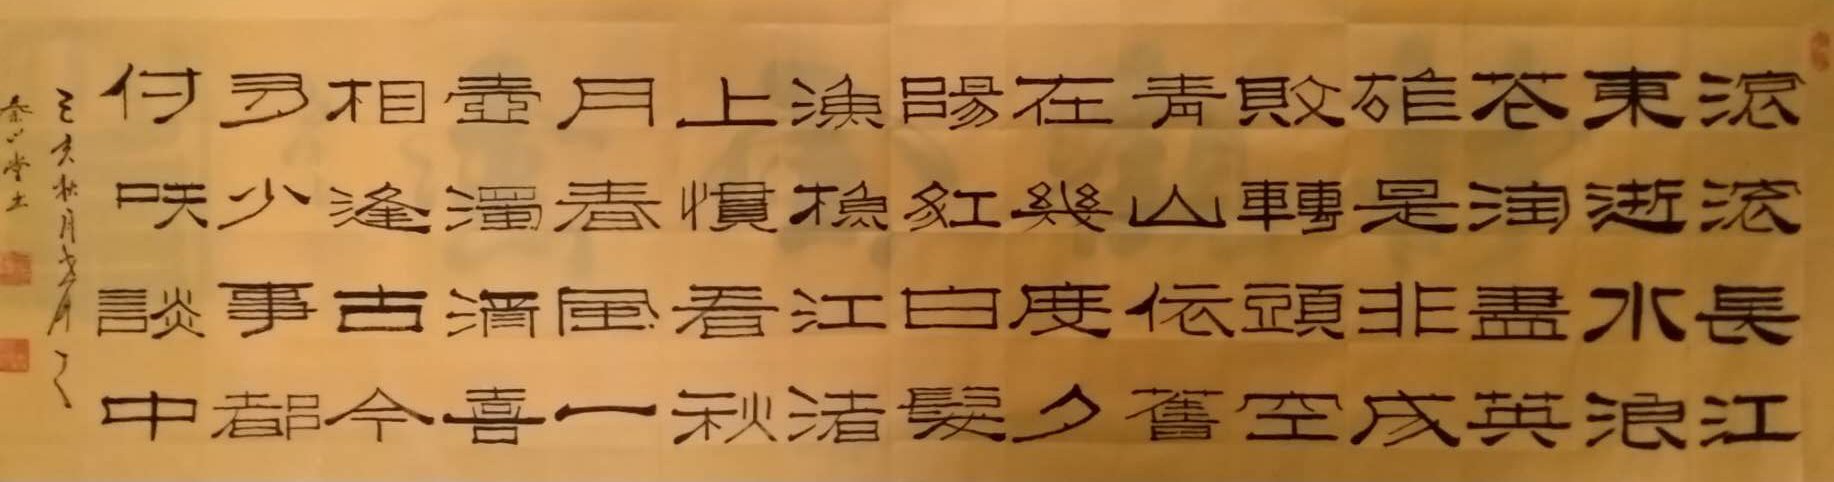 滚滚長江
東逝水浪
花淘盡英
雄是非成
敗轉頭空
青山依舊
在幾度夕
陽紅白髮
漁樵江渚
上慣看秋
月春風一
壺濁酒喜
相逢古今
多少事都
付咲談中
己亥秋月